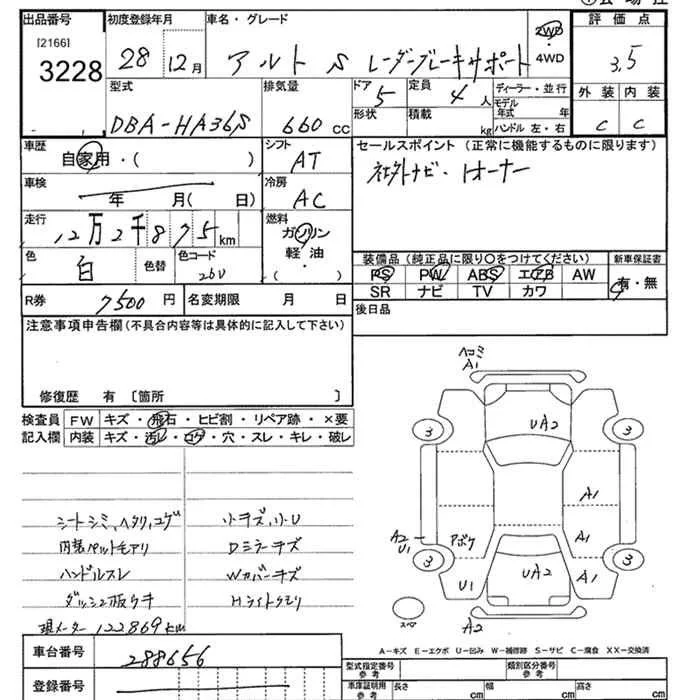 出品番号 初度登録年月 車名・グレード 評価点
[2166]
3228 28 12月 アルト S レーダーブレーキサポート 2WD 4WD 3.5
型式 排気量 ドア 5 定員 4人 ディーラー・並行 外装 内装
DBA-HA36S 660cc 形状 積載 kg モデル年式 年 C C
ハンドル 左・右
車歴 自家用・( ) シフト AT セールスポイント (正常に機能するものに限ります)
車検 年 月( 日) 冷房 AC 社外ナビ・1オーナー
走行 12万2千875km 燃料 ガソリン 軽油・( )
色 白 色替 色コード 26U
装備品 (純正品に限り〇をつけてください) 新車保証書
PS PW ABS エアB AW 有・無
SR ナビ TV カワ
R券 7500円 名変期限 月 日 後日品
注意事項申告欄(不具合内容等は具体的に記入して下さい)
修復歴 有 〔箇所 〕
検査員 FW キズ・飛石・ヒビ割・リペア跡・×要
記入欄 内装 キズ・汚レ・コゲ・穴・スレ・キレ・破レ
シートシミ,ヘタリ,コゲ 小キズ,小U
内装ペットモアリ Dミラーキズ
ハンドルスレ Wカバーキズ
ダッシュ板ウキ Hライトクモリ
現メーター122869km
ヘコミ
A1
UA2
3 3
A1
A2
U1
アポケ
A1
3 3
U1 UA2 A1
スペア
A2
A-キズ E-エクボ U-凹み W-補修跡 S-サビ C-腐食 XX-交換済
車台番号 288656
登録番号
型式指定番号 参考 類別区分番号 参考
車庫証明用 参考 長さ cm 幅 cm 高さ cm